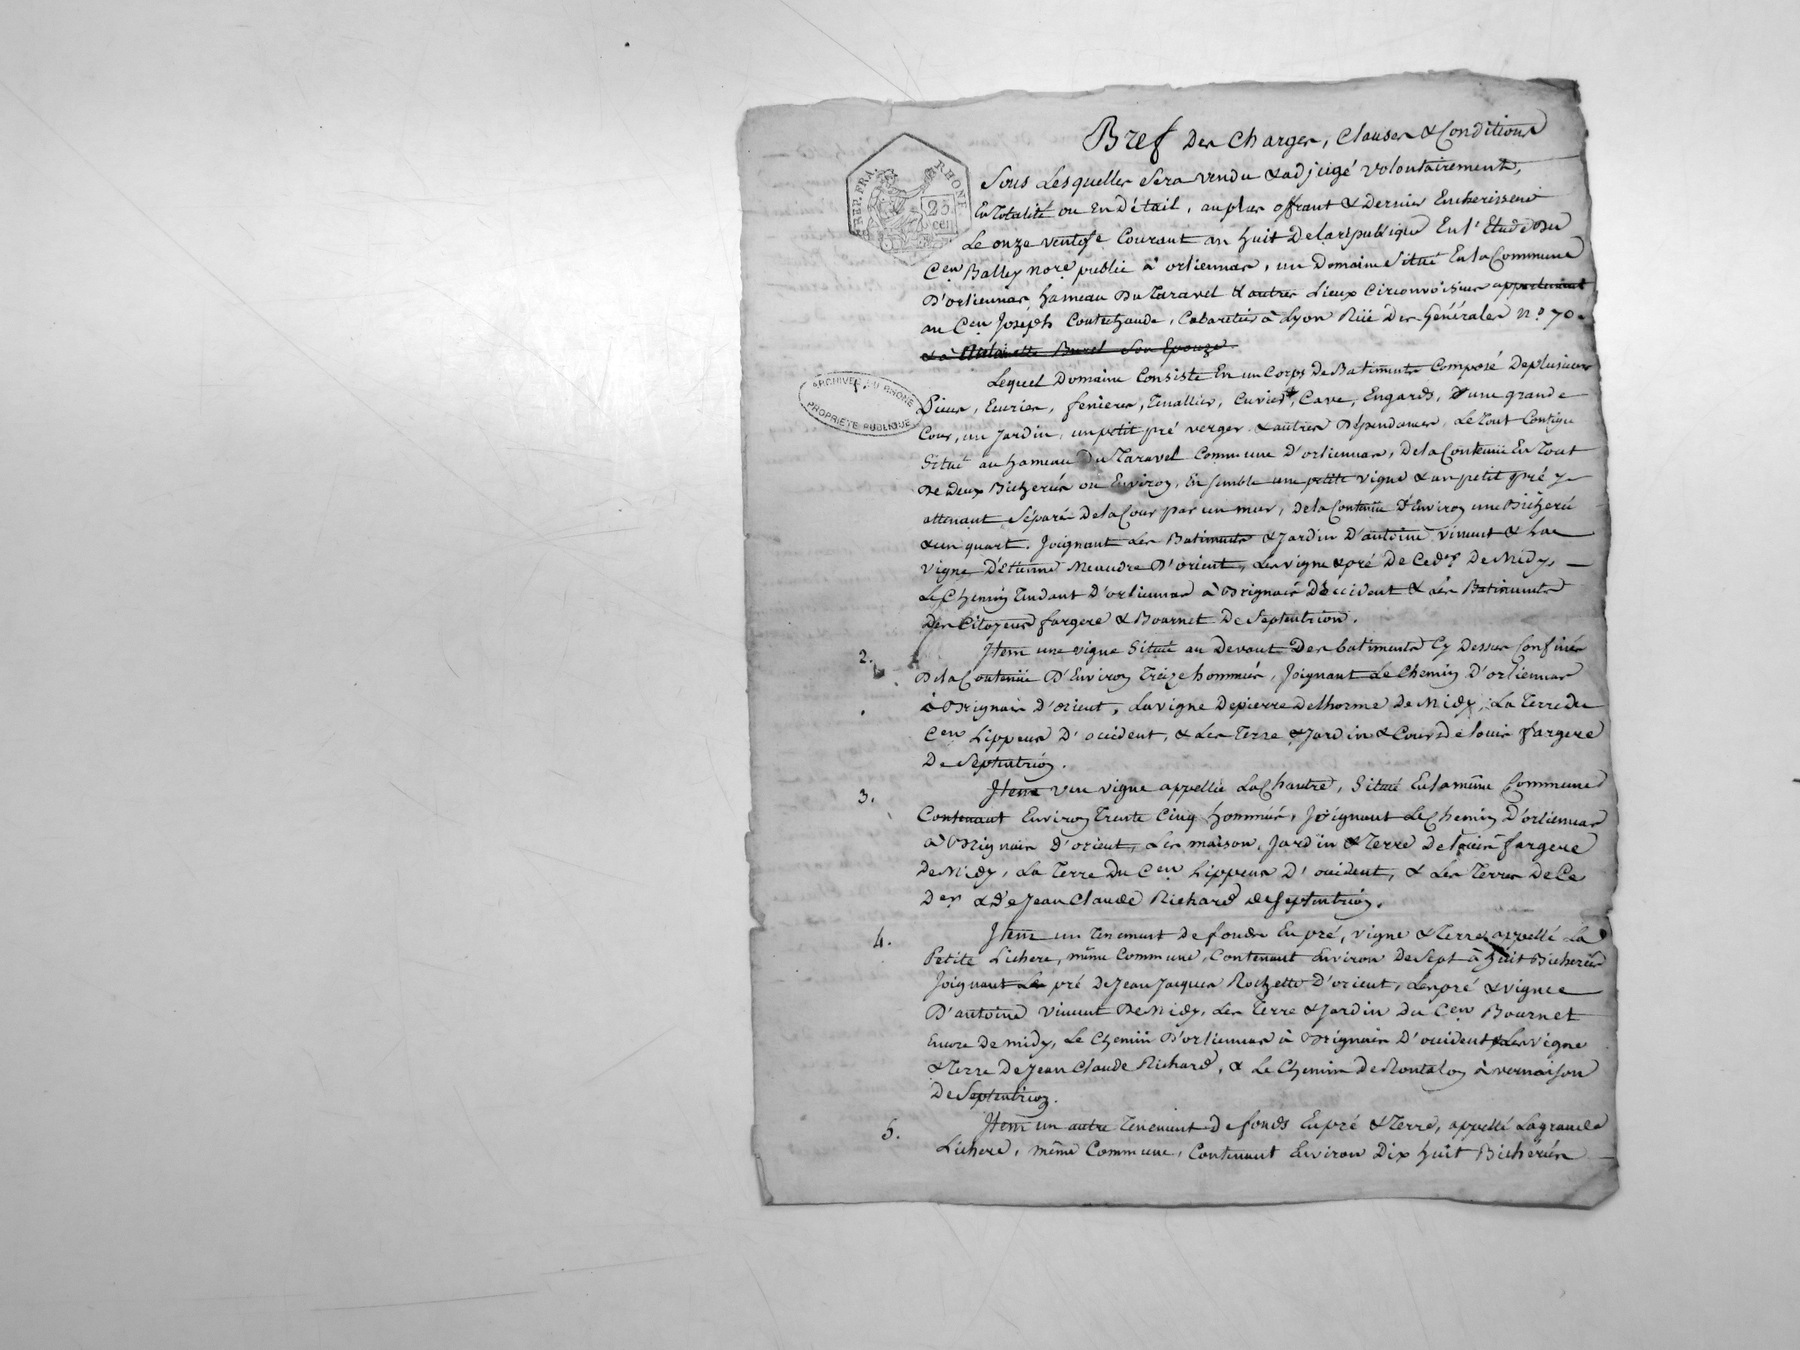 REP. FRA. RHONE
25 cen
ARCHIVES DU RHONE
PROPRIÉTÉ PUBLIQUE
Bref Des Charges, Clauses & Conditions
Sous Lesquelles Sera vendu & adjugé volontairement,
En Totalité ou En Détail, au plus offrant & Dernier Encherisseur
Le onze ventose Courant an huit De la république En l'Etude Du
Cen Balley nore public à orliennas, un Domaine Situé En la Commune
D'orliennas, hameau Du Taravel & autres Lieux Circonvoisins appartenant
au Cen Joseph Coutechaude, Cabaretier à Lyon Rüe Des Générales n.o 70.
& à Antoinette Burel Son Epouze
Lequel Domaine Consiste En un Corps De Batiments Composé De plusieurs
Pieces, Ecuries, fenieres, Tinallier, Cuvier, Cave, Engards, D'une grande
Cour, un Jardin, un petit pré verger & autres Dépendances, Le Tout Contigu
Situé au hameau Du Taravel Commune D'orliennas, De la Contenüe En Tout
De deux Bicherées ou Environ, Ensemble une petite vigne & un petit pré y
attenant Séparé De la Cour par un mur, De la Contenüe D'Environ une Bicherée
& un quart. Joignant Les Batiments & Jardin D'antoine vincent & La
vigne D'Etienne Meaudre D'orient, Les vigne & pré De Ce der De Midy,
Le Chemin Tendant D'orliennas à Brignais D'occident & Les Batiments
Des Citoyens fargere & Bournet De Septentrion.
2. Item une vigne Située au Devant Des batiments Cy Dessus Confinés
De la Contenüe D'Environ Treize hommées, Joignant Le Chemin D'orliennas
à Brignais D'orient, La vigne De pierre Delhorme De Midy, La Terre du
Cen Lippeus D'occident, & Les Terre & Jardin & Cour De Louis fargere
De Septentrion.
3. Item une vigne appellée La Chautre, Située En la même Commune
Contenant Environ Trente Cinq hommées, Joignant Le Chemin D'orliennas
à Brignais D'orient, Les maison, Jardin & Terre De Louis fargere
De Midy, La Terre Du Cen Lippeus D'occident, & Les Terres De Ce
Der & De Jean Claude Richard De Septentrion.
4. Item un Tenement De fonds En pré, vigne & Terre, appellé La
Petite Lichere, même Commune, Contenant Environ De Sept à huit Bicherées
Joignant Le pré De Jean Jacques Rochette D'orient, Les pré & vigne
D'antoine vincent De Midy, Les Terre & Jardin Du Cen Bournet
Encore De midy, Le Chemin D'orliennas à Brignais D'occident & Les vigne
& Terre De Jean Claude Richard, & Le Chemin De Montalon à vernaison
De Septentrion.
5. Item un autre Tenement De fonds En pré & Terre, appellé La grande
Lichere, même Commune, Contenant Environ Dix huit Bicherées